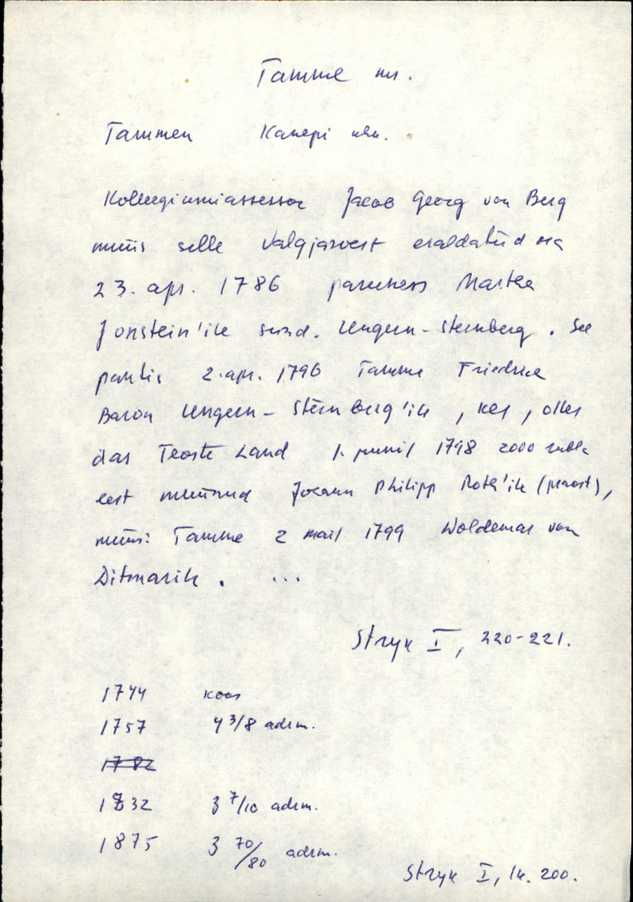 Tamme m.
Tammen Kanepi khk.
Kolleegiumiassessor Jacob Georg von Berg
müüs selle Valgjärvest eraldatud
23. apr. 1786 paruness Martha
sünd. Ungern-Sternberg. See
pantis 2. apr. 1796 Tamme Friedrich
Baron Ungern-Sternberg'ile, kes, olles
das Teoste Land 1. juunil 1798 2000 rubla
eest müünud Johann Philipp Roth'ile (praost),
müüs: Tamme 2 mail 1799 Woldemar von
Ditmarile. ...
Stryk I, 220-221.
1744 koos
1757 4 3/8 adrm.
1782
1832 3 7/10 adrm.
1875 3 70/80 adrm.
Stryk I, lk. 200.